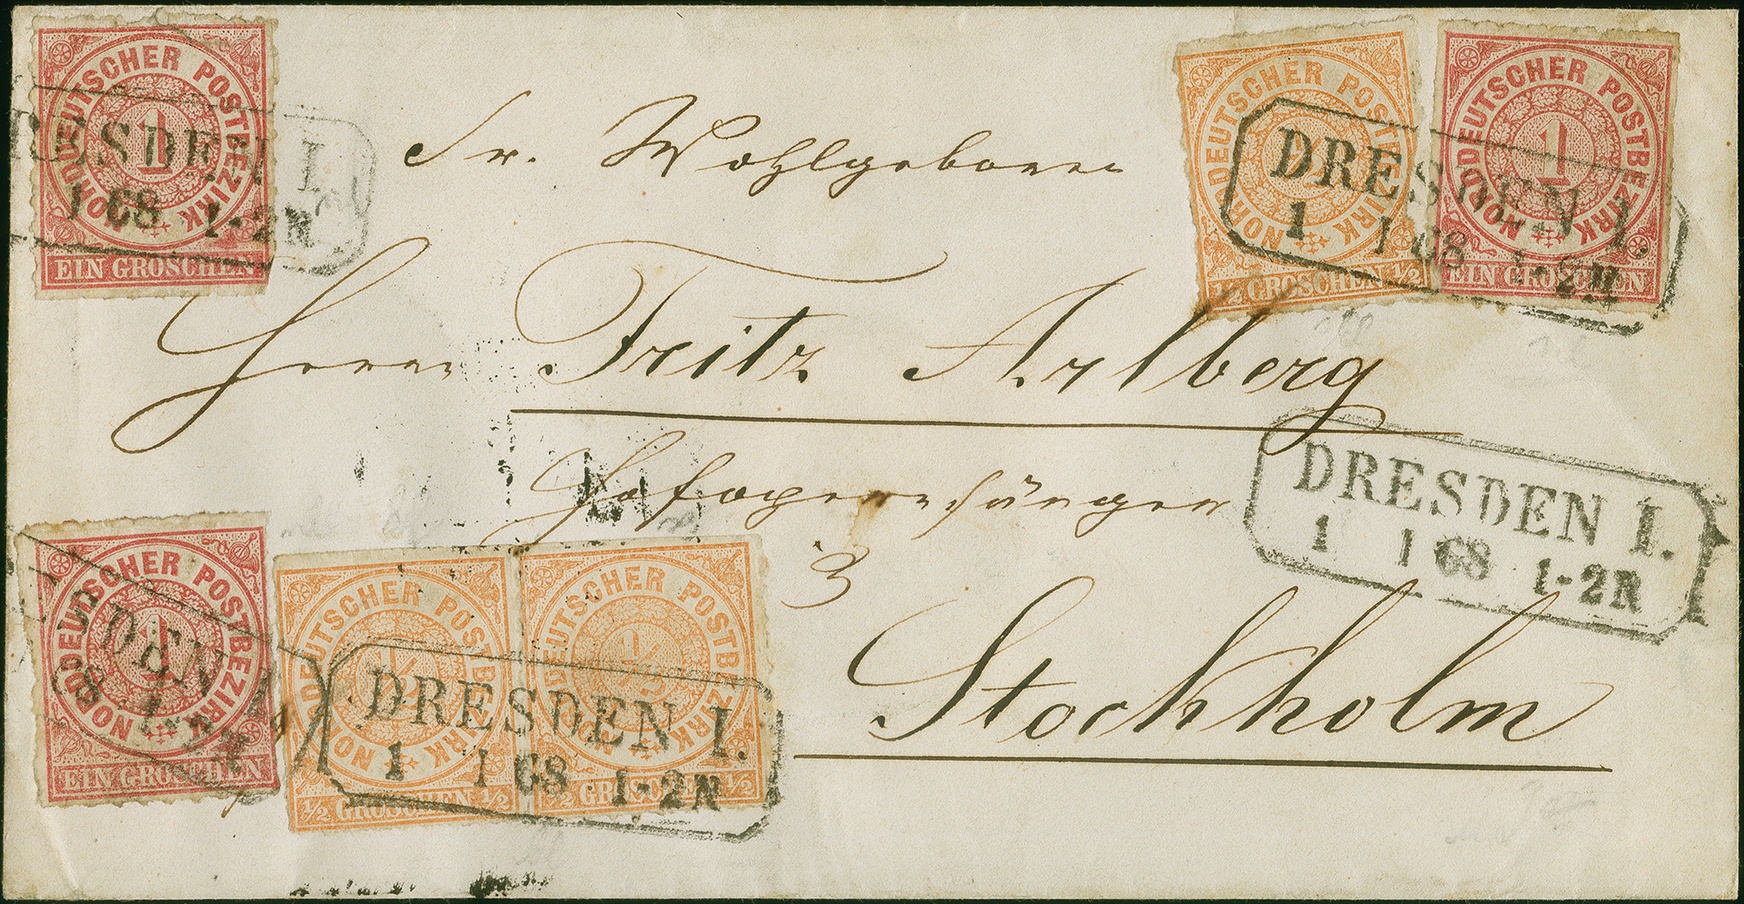 NORDDEUTSCHER POSTBEZIRK
1
EIN GROSCHEN
DRESDEN I.
1 68 1-2N
NORDDEUTSCHER POSTBEZIRK
1/2
1/2 GROSCHEN 1/2
NORDDEUTSCHER POSTBEZIRK
1
EIN GROSCHEN
DRESDEN I.
1 1 68 1-2N
Sr. Wohlgeboren
Herrn Fritz Arlberg
Hofopernsänger
3
Stockholm
DRESDEN I.
1 1 68 1-2N
NORDDEUTSCHER POSTBEZIRK
1
EIN GROSCHEN
DEN I.
68 1-2N
NORDDEUTSCHER POSTBEZIRK
1/2
1/2 GROSCHEN 1/2
NORDDEUTSCHER POSTBEZIRK
1/2
1/2 GROSCHEN 1/2
DRESDEN I.
1 1 68 1-2N